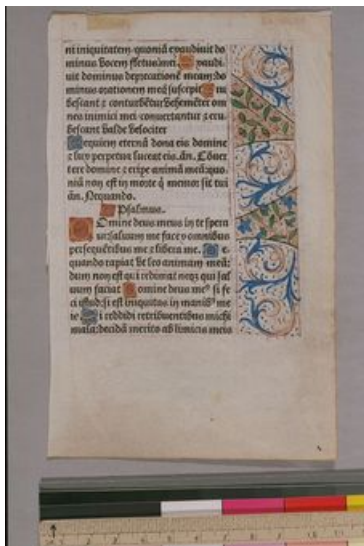 ni iniquitatem. quoniã exaudiuit do
minus vocem fletus mei. Exaudi
uit dominus deprecationẽ meam: do
minus orationem meã suscepit Eru
bescant & conturbẽtur vehemẽter om
nes inimici mei conuertantur & eru
bescant valde velociter
Requiem eternã dona eis domine
& lux perpetua luceat eis. añ. Cõuer
tere domine & eripe animã meã: quo
niã non est in morte q̃ memor sit tui
añ. Nequando.
Psalmus.
Domine deus meus in te spera
ui: saluum me fac ex omnibus
persequẽtibus me & libera me. Ne
quando rapiat vt leo animam meã:
dum non est qui redimat neqз qui sal
uum faciat Domine deus meꝰ si fe
ci istud: si est iniquitas in manibꝰ me
is Si reddidi retribuentibus michi
mala: decidã merito ab inimicis meis